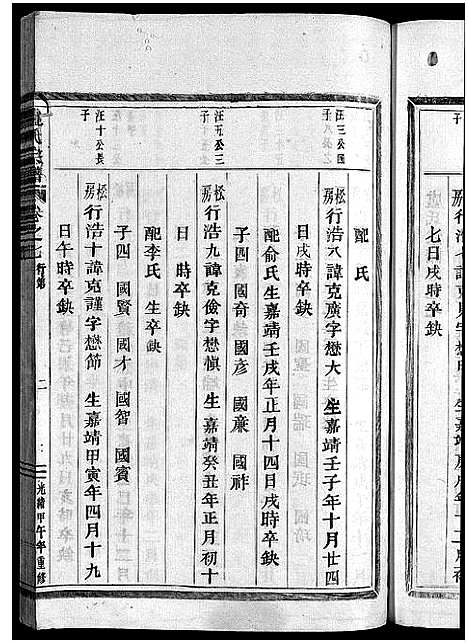 七日戌時卒缺
配 氏
汪三公四
子八公之
松房行浩八諱克廣字懋大 生嘉靖壬子年十月廿四
日戌時卒缺
配俞氏生嘉靖壬戌年正月十四日戌時卒缺
子四 國奇 國彥 國廉 國祚
汪五公三
子
松房行浩九諱克儉字懋慎 生嘉靖癸丑年正月初十
日 時卒缺
配李氏 生卒缺
子四 國賢 國才 國智 國賓
汪十公長
子
松房行浩十諱克謹字懋節 生嘉靖甲寅年四月十九
日午時卒缺
氏宗譜 卷之七 行第 二 光緒甲午年重修